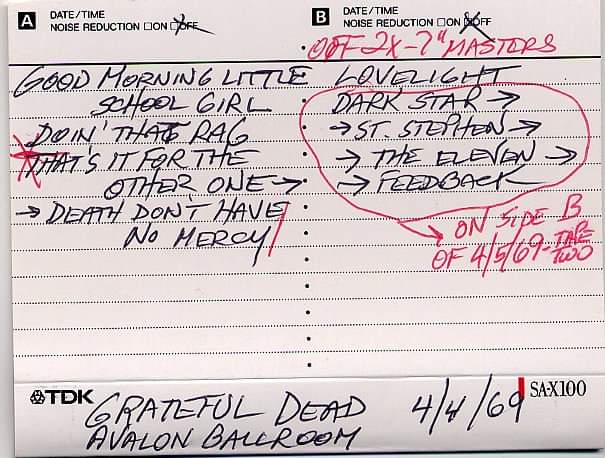 A DATE/TIME
NOISE REDUCTION □ON □OFF
GOOD MORNING LITTLE
SCHOOL GIRL
DOIN' THAT RAG
THAT'S IT FOR THE
OTHER ONE →
→ DEATH DON'T HAVE
NO MERCY
B DATE/TIME
NOISE REDUCTION □ON □OFF
OFF 2X-7" MASTERS
LOVELIGHT
DARK STAR →
→ ST. STEPHEN →
→ THE ELEVEN →
→ FEEDBACK
→ ON SIDE B
OF 4/5/69-TAPE
TWO
TDK
GRATEFUL DEAD 4/4/69
AVALON BALLROOM
SA-X100